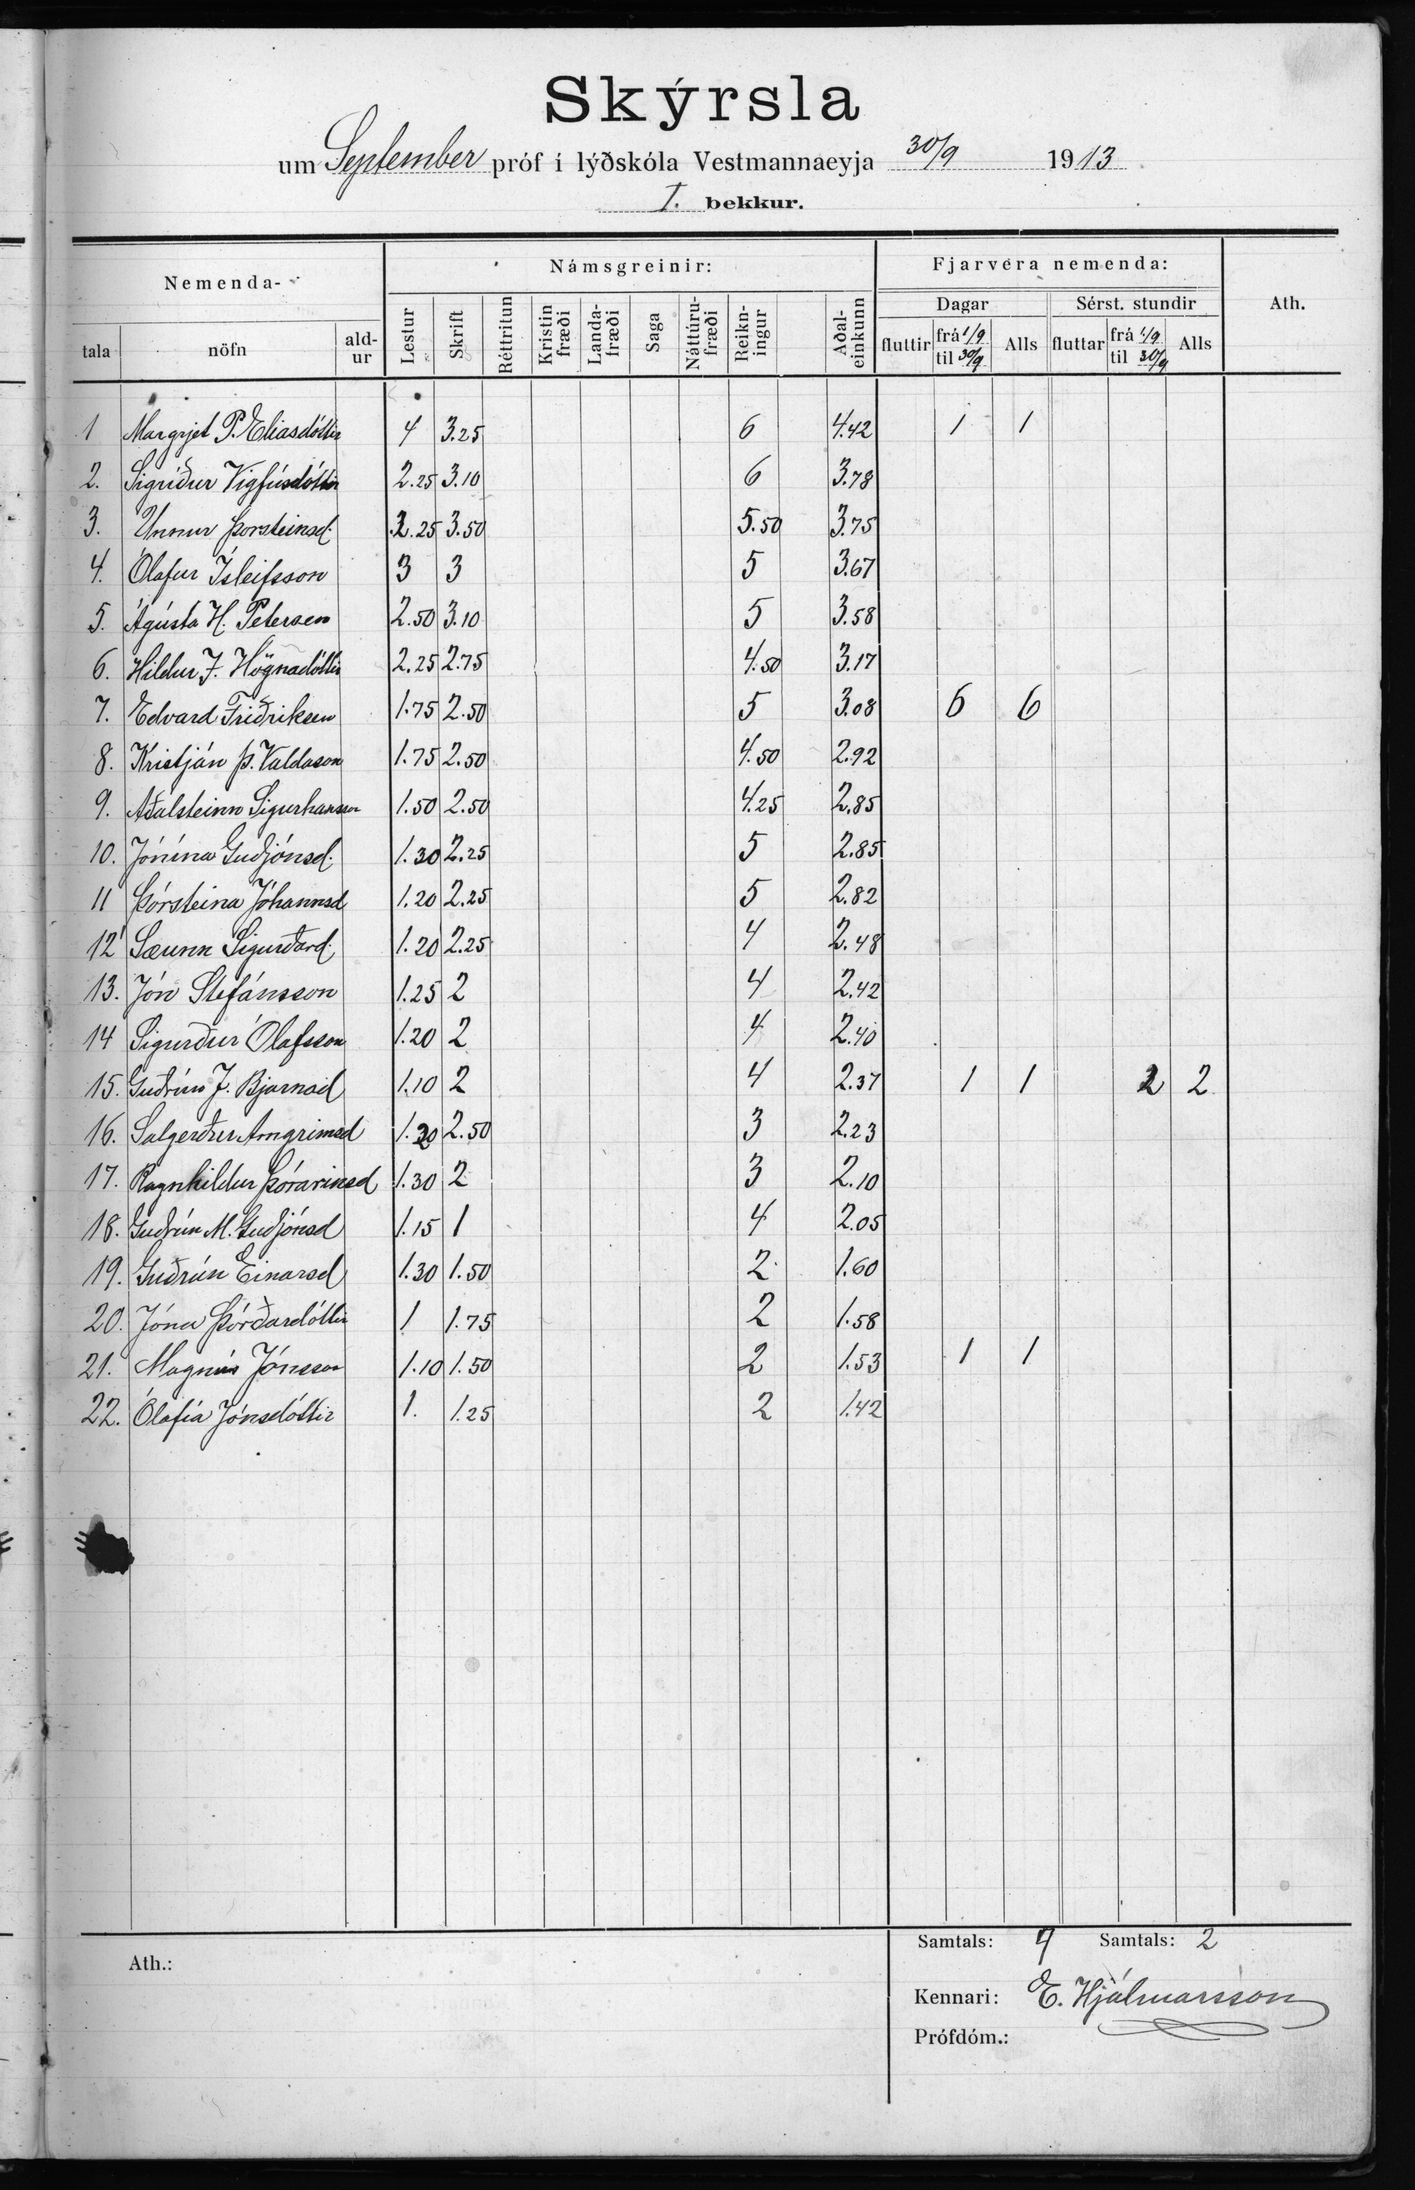 Skýrsla
um September próf í lýðskóla Vestmannaeyja 30/9 1913
I. bekkur.
Nemenda- Námsgreinir: Fjarvera nemenda: Ath.
Dagar Sérst. stundir
tala nöfn ald-ur Lestur Skrift Réttritun Kristin fræði Landa-fræði Saga Náttúru-fræði Reikn-ingur Aðal-einkunn fluttir frá 1/9 til 30/9 Alls fluttar frá 1/9 til 30/9 Alls
1 Margrjet P. Elíasdóttir 4 3.25 6 4.42 1 1
2. Sigríður Vigfúsdóttir 2.25 3.10 6 3.78
3. Unnur Þorsteinsd. 2.25 3.50 5.50 3.75
4. Ólafur Ísleifsson 3 3 5 3.67
5. Ágústa H. Petersen 2.50 3.10 5 3.58
6. Hildur J. Högnadóttir 2.25 2.75 4.50 3.17
7. Edvard Friðriksen 1.75 2.50 5 3.08 6 6
8. Kristján Þ. Valdason 1.75 2.50 4.50 2.92
9. Aðalsteinn Sigurhansson 1.50 2.50 4.25 2.85
10. Jónína Guðjónsd. 1.30 2.25 5 2.85
11 Þórsteina Jóhannsd 1.20 2.25 5 2.82
12 Sæunn Sigurðard. 1.20 2.25 4 2.48
13. Jón Stefánsson 1.25 2 4 2.42
14 Sigurður Ólafsson 1.20 2 4 2.40
15. Guðrún J. Bjarnad 1.10 2 4 2.37 1 1 2 2
16. Salgerður Arngrimsd 1.20 2.50 3 2.23
17. Ragnhildur Þórarinsd 1.30 2 3 2.10
18. Guðrún M. Guðjónsd 1.15 1 4 2.05
19. Guðrún Einarsd 1.30 1.50 2 1.60
20. Jóna Þórðardóttir 1 1.75 2 1.58
21. Magnús Jónsson 1.10 1.50 2 1.53 1 1
22. Ólafía Jónsdóttir 1. 1.25 2 1.42
Samtals: 9 Samtals: 2
Ath.:
Kennari: E. Hjálmarsson
Prófdóm.: